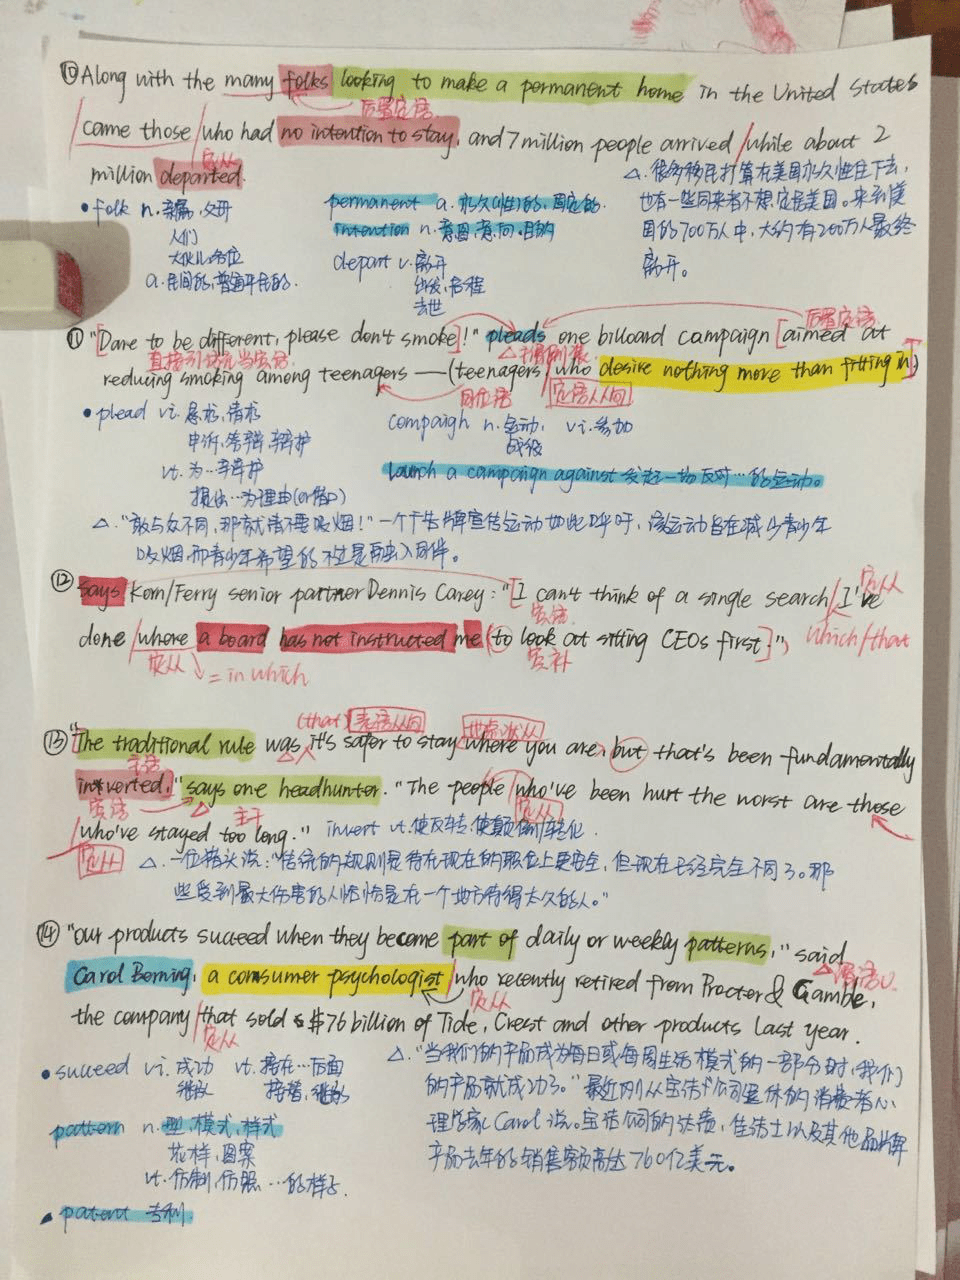 ⑩ Along with the many folks looking to make a permanent home in the United States
后置定语
came those who had no intention to stay, and 7 million people arrived while about 2
定从
million departed.
△. 很多移民打算在美国永久性住下去,
也有一些同来者不想定居美国。来到美
国的700万人中,大约有200万人最终
离开。
• folk n. 亲属,父母
人们
大伙儿,各位
a. 民间的,普通平民的.
permanent a. 永久(性)的,固定的
intention n. 意图,意向,目的
depart v. 离开
出发,启程
去世
⑪ "[Dare to be different, please don't smoke]!" pleads one billoard campaign [aimed at
后置定语
直接引语充当宾语
reducing smoking among teenagers —— (teenagers who desire nothing more than fitting in)]
同位语
定语从句
• plead vi. 恳求,请求
申诉,答辩,辩护
vt. 为…辩护
提出…为理由(or借口)
compaigh n. 运动, vi. 参加
战役
launch a campaign against 发起一场反对…的运动。
△. "敢与众不同,那就请不要吸烟!" 一个广告牌宣传运动如此呼吁,该运动旨在减少青少年
吸烟,而青少年希望的不过是融入同伴。
⑫ Says Korn/Ferry senior partner Dennis Carey: "[I can't think of a single search I've
定从
宾语
done where a board has not instructed me (to look at sitting CEOs first]."
which/that
定从
= in which
宾补
(that) 表语从句
地点状从
⑬ "The traditional rule was it's safer to stay where you are, but that's been fundamentally
主语
inverted," says one headhunter. "The people who've been hurt the worst are those
宾语
主干
定从
who've stayed too long." invert vt. 使反转,使颠倒,转化.
定从
△. 一位猎头说:"传统的规则是待在现在的职位上更安全,但现在已经完全不同了。那
些受到最大伤害的人恰恰是在一个地方待得太久的人。"
⑭ "Our products succeed when they become part of daily or weekly patterns," said
Carol Berning, a consumer psychologist who recently retired from Procter & Gamble,
定从
the company that sold $76 billion of Tide, Crest and other products last year.
定从
• succeed vi. 成功 vt. 接在…后面
继承 接替,继承
pattern n. 型,模式,样式
花样,图案
vt. 仿制,仿照…的样子.
patent 专利
△. "当我们的产品成为每日或每周生活模式的一部分时,我们
的产品就成功了。" 最近刚从宝洁公司退休的消费者心
理学家Carol说。宝洁公司的汰渍,佳洁士以及其他品牌
产品去年的销售额高达760亿美元。